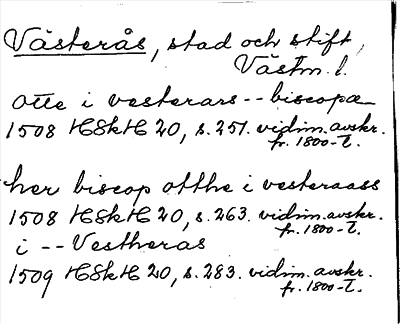 Västerås, stad och stift,
Västm. l.
otte i vesterars -- biscopæ
1508 HSkH 20, s. 251. vidim. avskr.
fr. 1800-t.
her biscop otthe i vesteraass
1508 HSkH 20, s. 263. vidim. avskr.
fr. 1800-t.
i -- Vestheras
1509 HSkH 20, s. 283. vidim. avskr.
fr. 1800-t.